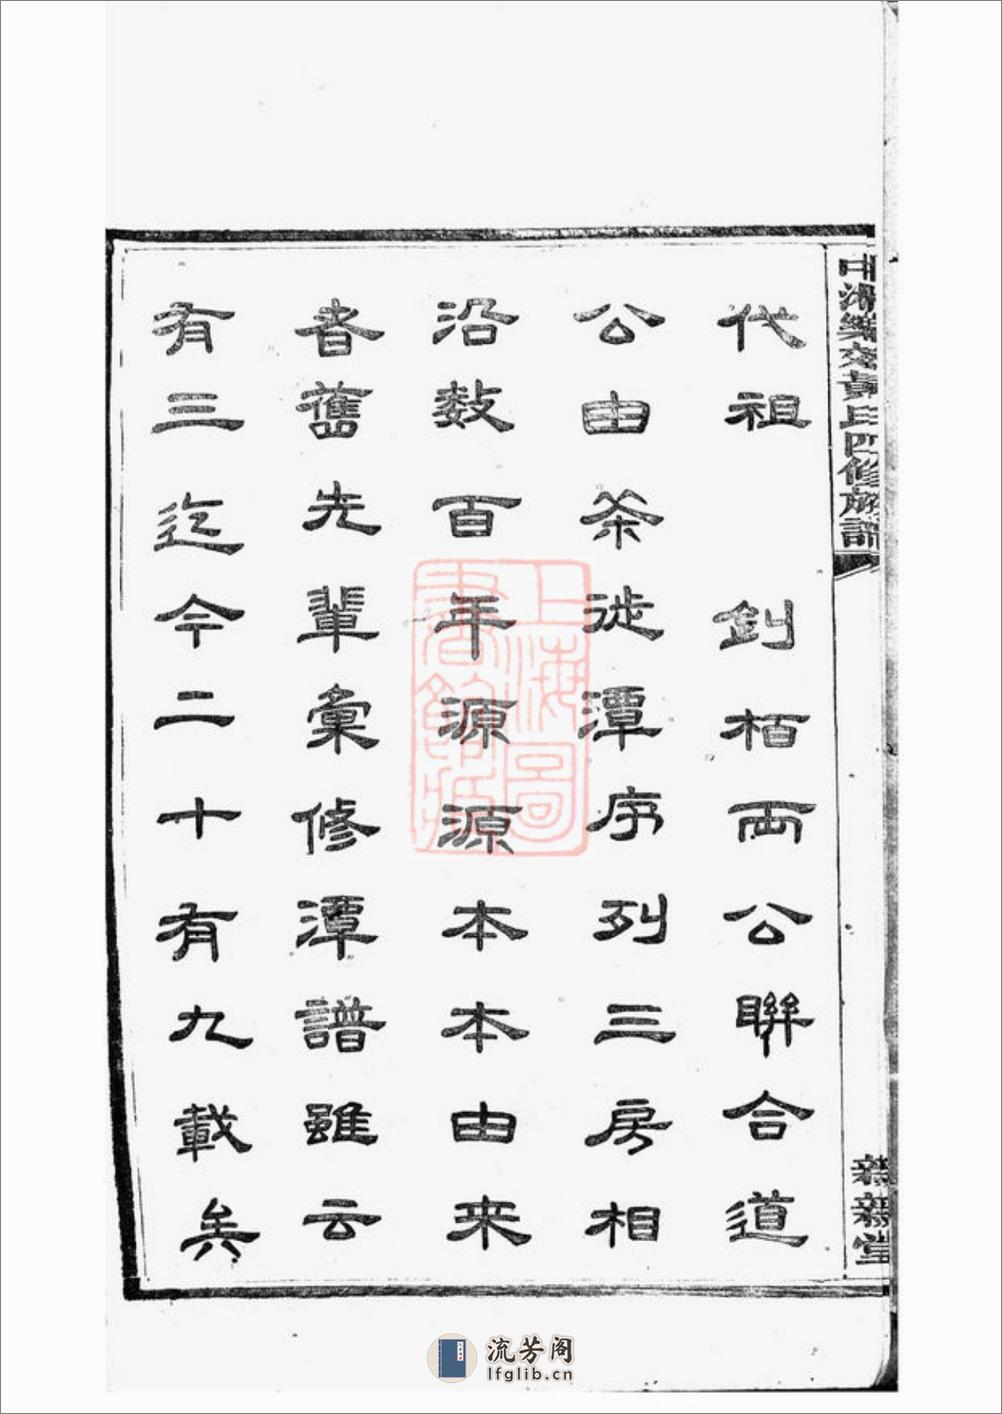 代祖 釗栢兩公聯合道
公由茶徙潭序列三房相
沿數百年源源本本由来
者舊先輩彙修潭譜雖云
有三迄今二十有九載矣
黃氏四修族譜
親親堂
上海圖書館藏
流芳阁
lfglib.cn